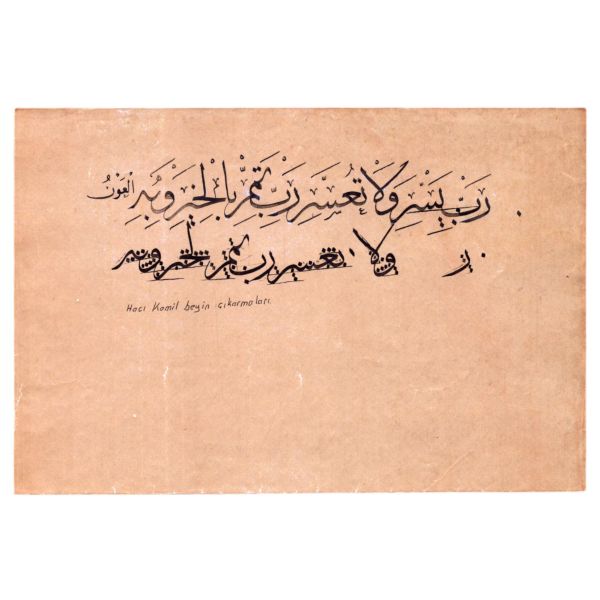 رَبِّ يَسِّرْ وَلَا تُعَسِّرْ رَبِّ تَمِّمْ بِالْخَيْرِ وَبِهِ الْعَوْنُ
ولا تعسر رب تمم بالخير وبه
Hacı Kamil beyin çıkarmaları.